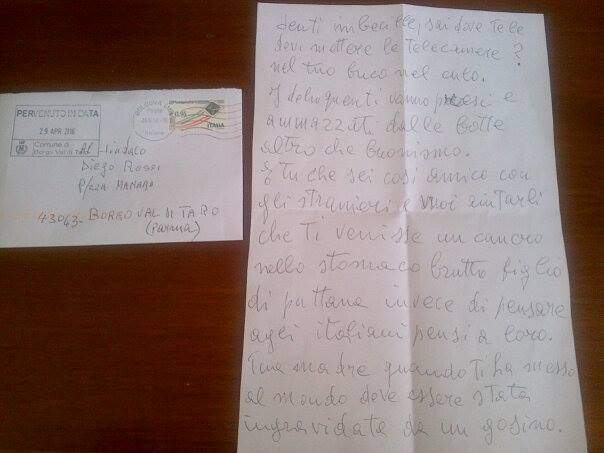 PERVENUTO IN DATA
29 APR 2016
Comune di
Borgo Val di Taro
BOLOGNA
ITALIA
Al Sindaco
Diego Rossi
P/zza MANARA
43043 - BORGO VAL DI TARO
(Parma)
Senti imbecille, sai dove te le
devi mettere le telecamere?
nel tuo buco nel culo.
I delinquenti vanno presi e
ammazzati dalle botte
altro che buonismo.
E tu che sei così amico con
gli stranieri e vuoi aiutarli
che ti venisse un cancro
nello stomaco brutto figlio
di puttana invece di pensare
agli italiani pensi a loro.
Tua madre quando ti ha messo
al mondo deve essere stata
ingravidata da un